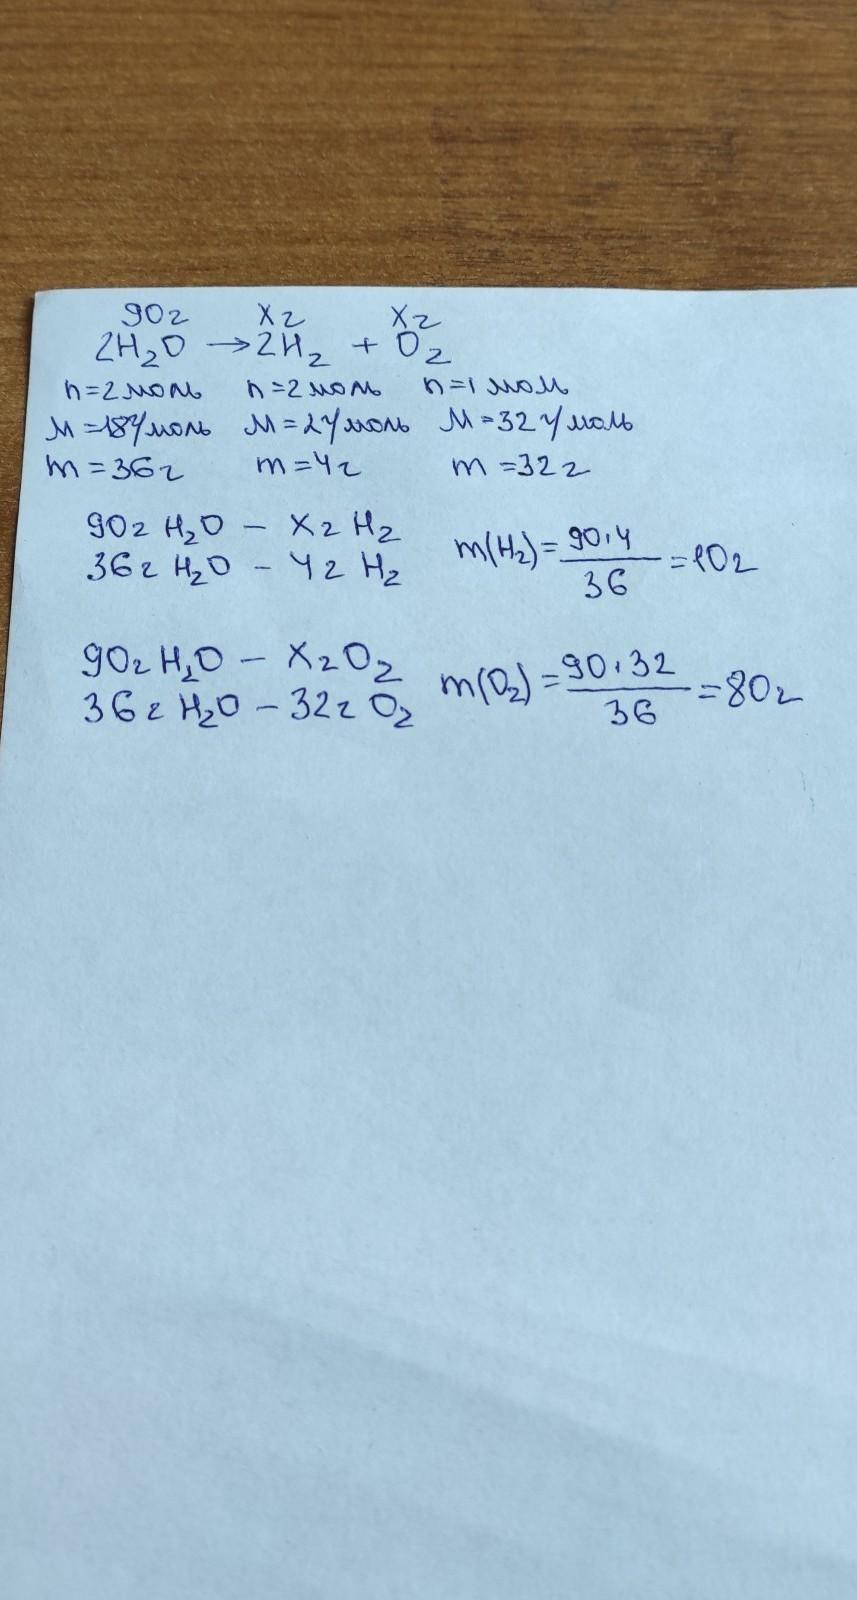 90г xг xг
2H₂O → 2H₂ + O₂
n=2моль n=2моль n=1моль
M=18г/моль M=2г/моль M=32г/моль
m=36г m=4г m=32г
90г H₂O – xг H₂
36г H₂O – 4г H₂
m(H₂)=90·4/36=10г
90г H₂O – xг O₂
36г H₂O – 32г O₂
m(O₂)=90·32/36=80г